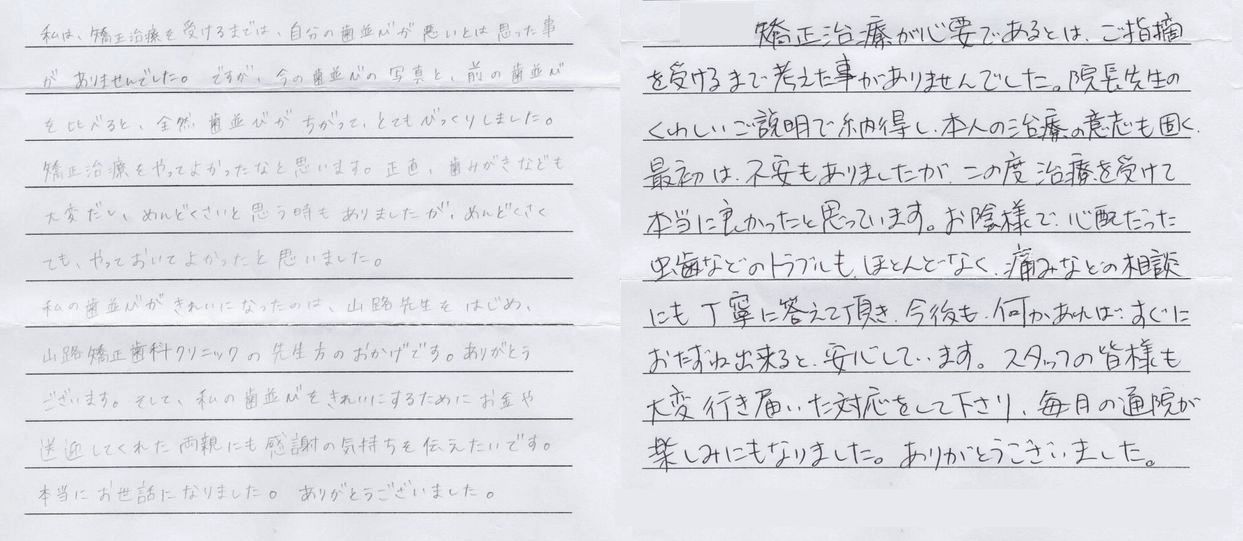 私は、矯正治療を受けるまでは、自分の歯並びが悪いとは思った事
がありませんでした。ですが、今の歯並びの写真と、前の歯並び
を比べると、全然歯並びがちがって、とてもびっくりしました。
矯正治療をやってよかったなと思います。正直、歯みがきなども
大変だし、めんどくさいと思う時もありましたが、めんどくさく
ても、やっておいてよかったと思いました。
私の歯並びがきれいになったのは、山路先生をはじめ、
山路矯正歯科クリニックの先生方のおかげです。ありがとう
ございます。そして、私の歯並びをきれいにするためにお金や
送迎してくれた両親にも感謝の気持ちを伝えたいです。
本当にお世話になりました。ありがとうございました。
矯正治療が必要であるとは、ご指摘
を受けるまで考えた事がありませんでした。院長先生の
くわしいご説明で納得し、本人の治療の意志も固く、
最初は、不安もありましたが、この度治療を受けて
本当に良かったと思っています。お陰様で、心配だった
虫歯などのトラブルも、ほとんどなく、痛みなどの相談
にも丁寧に答えて頂き、今後も、何かあれば、すぐに
おたずね出来ると、安心しています。スタッフの皆様も
大変行き届いた対応をして下さり、毎月の通院が
楽しみにもなりました。ありがとうございました。